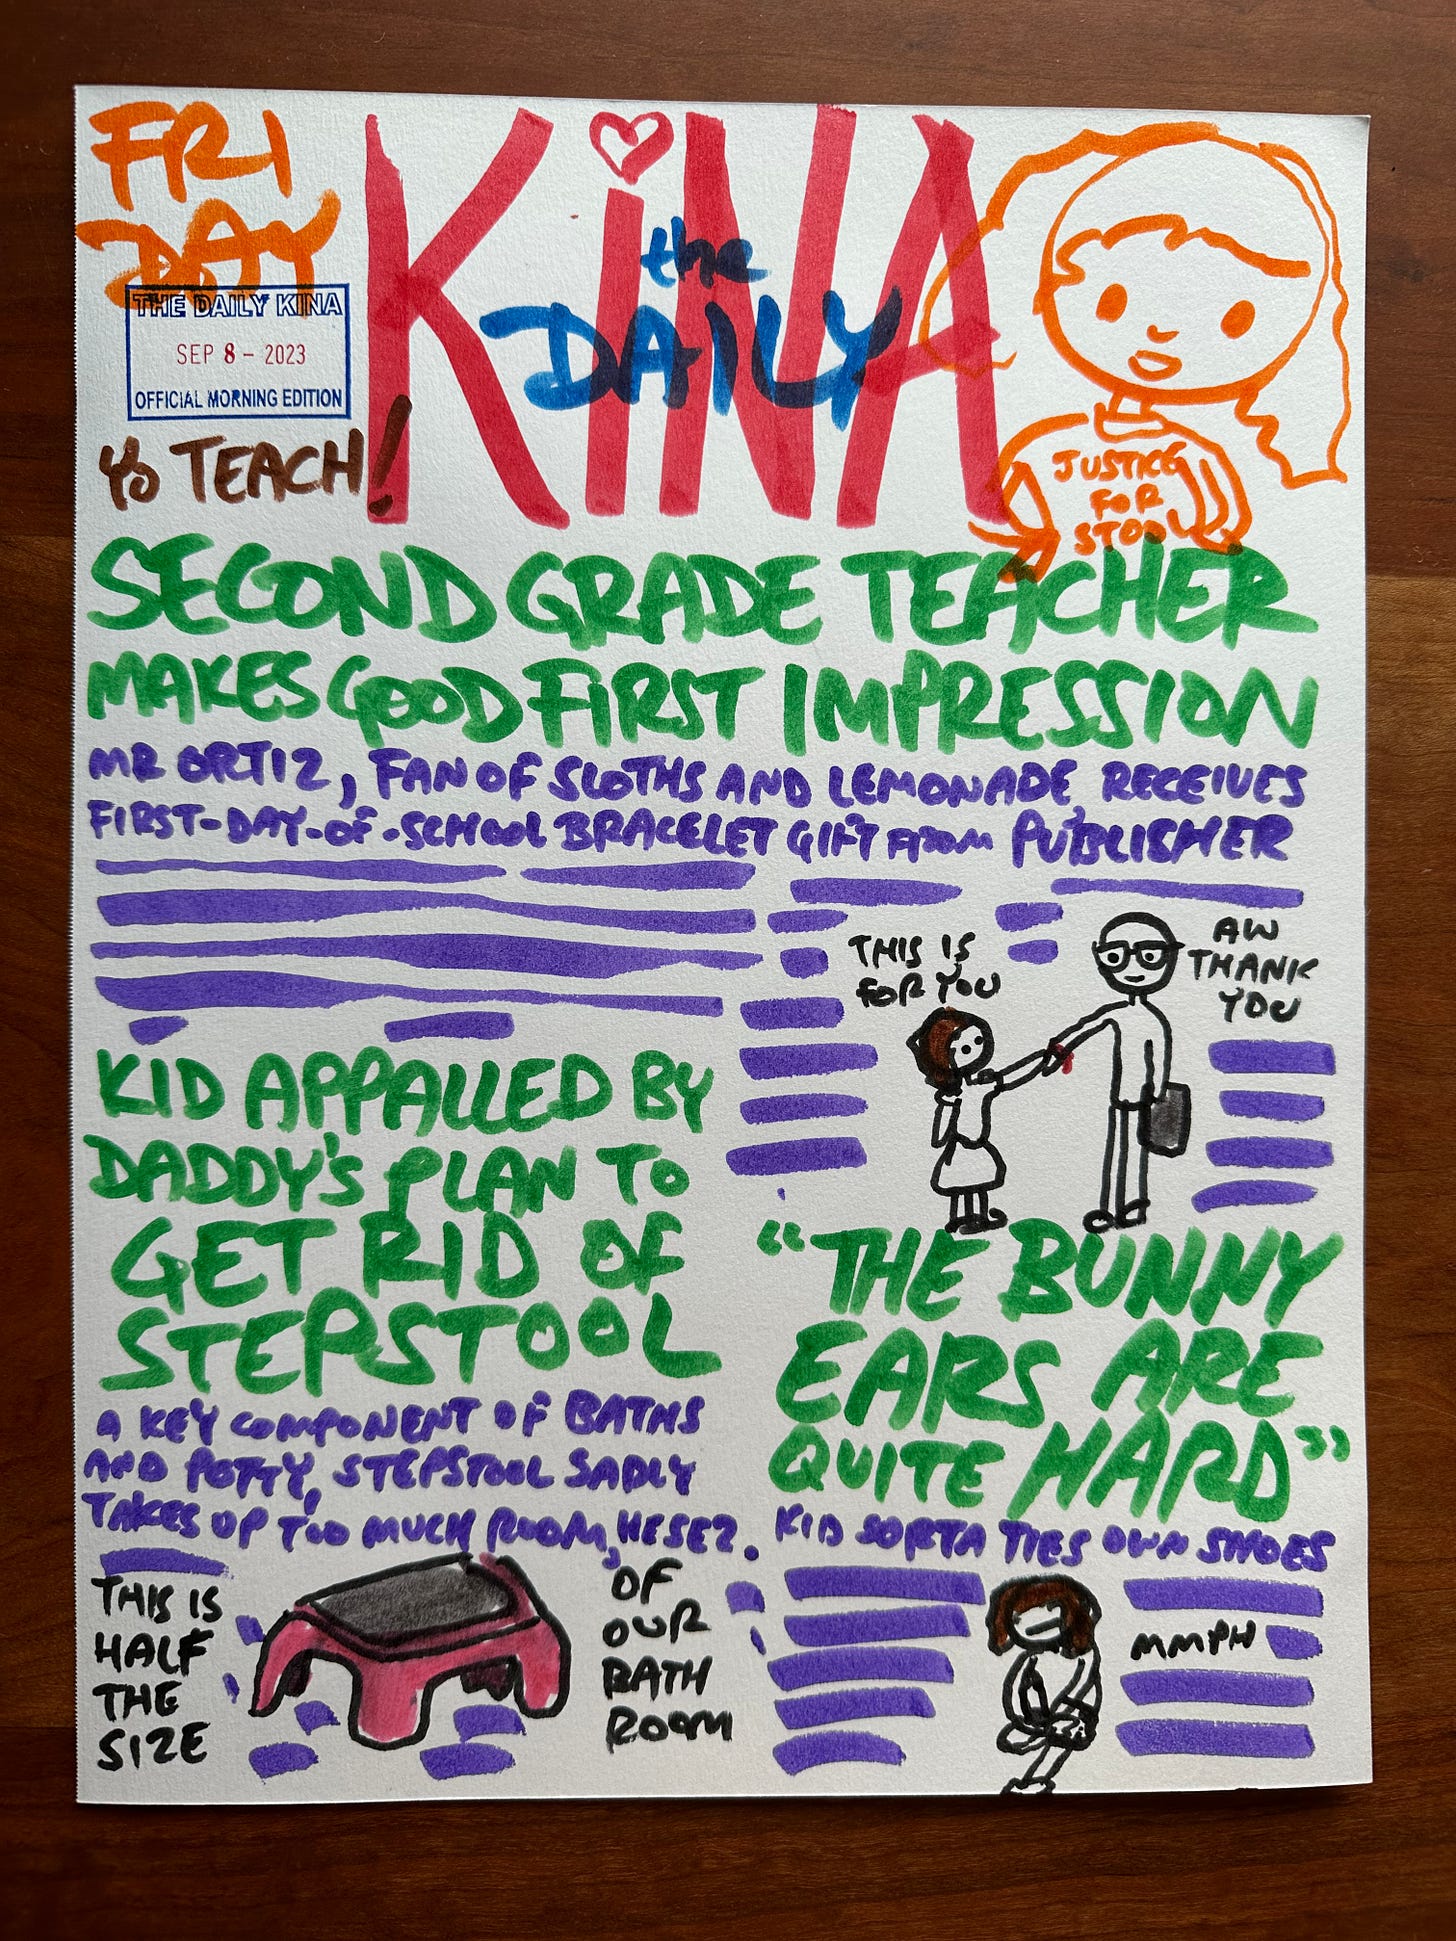 FRI
DAY
THE DAILY KINA
SEP 8 - 2023
OFFICIAL MORNING EDITION
YO TEACH!
KiNA
the
DAILY
JUSTICE
FOR
STOOL
SECOND GRADE TEACHER
MAKES GOOD FIRST IMPRESSION
MR ORTIZ, FAN OF SLOTHS AND LEMONADE, RECEIVES
FIRST-DAY-OF-SCHOOL BRACELET GIFT FROM PUBLISHER
THIS IS
FOR YOU
AW
THANK
YOU
KID APPALLED BY
DADDY'S PLAN TO
GET RID OF
STEPSTOOL
A KEY COMPONENT OF BATHS
AND POTTY, STEPSTOOL SADLY
TAKES UP TOO MUCH ROOM, HE SEZ.
THIS IS
HALF
THE
SIZE
OF
OUR
BATH
ROOM
"THE BUNNY
EARS ARE
QUITE HARD"
KID SORTA TIES OWN SHOES
MMPH